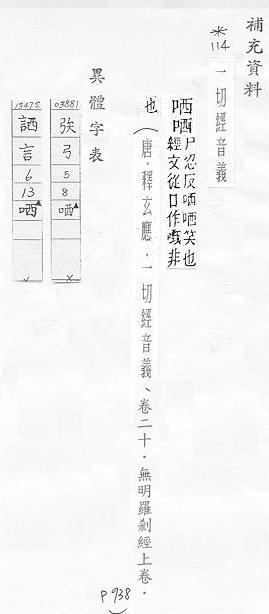 補充資料
*114 一切經音義
哂哂尸忍反哂哂笑也
經文從口作嘅非
也(唐．釋玄應．一切經音義、卷二十．無明羅剎經上卷．P938)
異體字表
03881
弓
5
8
哂
19472
言
6
13
哂